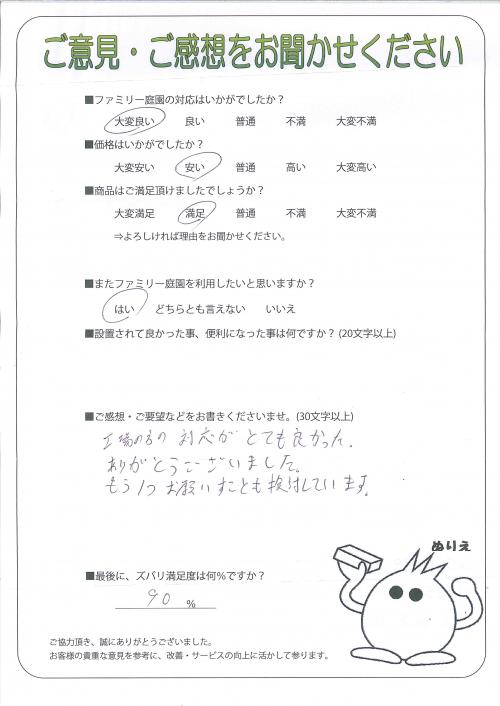 ご意見・ご感想をお聞かせください
■ファミリー庭園の対応はいかがでしたか？
大変良い 良い 普通 不満 大変不満
■価格はいかがでしたか？
大変安い 安い 普通 高い 大変高い
■商品はご満足頂けましたでしょうか？
大変満足 満足 普通 不満 大変不満
⇒よろしければ理由をお聞かせください。
■またファミリー庭園を利用したいと思いますか？
はい どちらとも言えない いいえ
■設置されて良かった事、便利になった事は何ですか？(20文字以上)
■ご感想・ご要望などをお書きくださいませ。(30文字以上)
対応がとても良かった。
ありがとうございました。
もう1つお願いすことも検討しています。
ぬりえ
■最後に、ズバリ満足度は何%ですか？
90 %
ご協力頂き、誠にありがとうございました。
お客様の貴重な意見を参考に、改善・サービスの向上に活かして参ります。